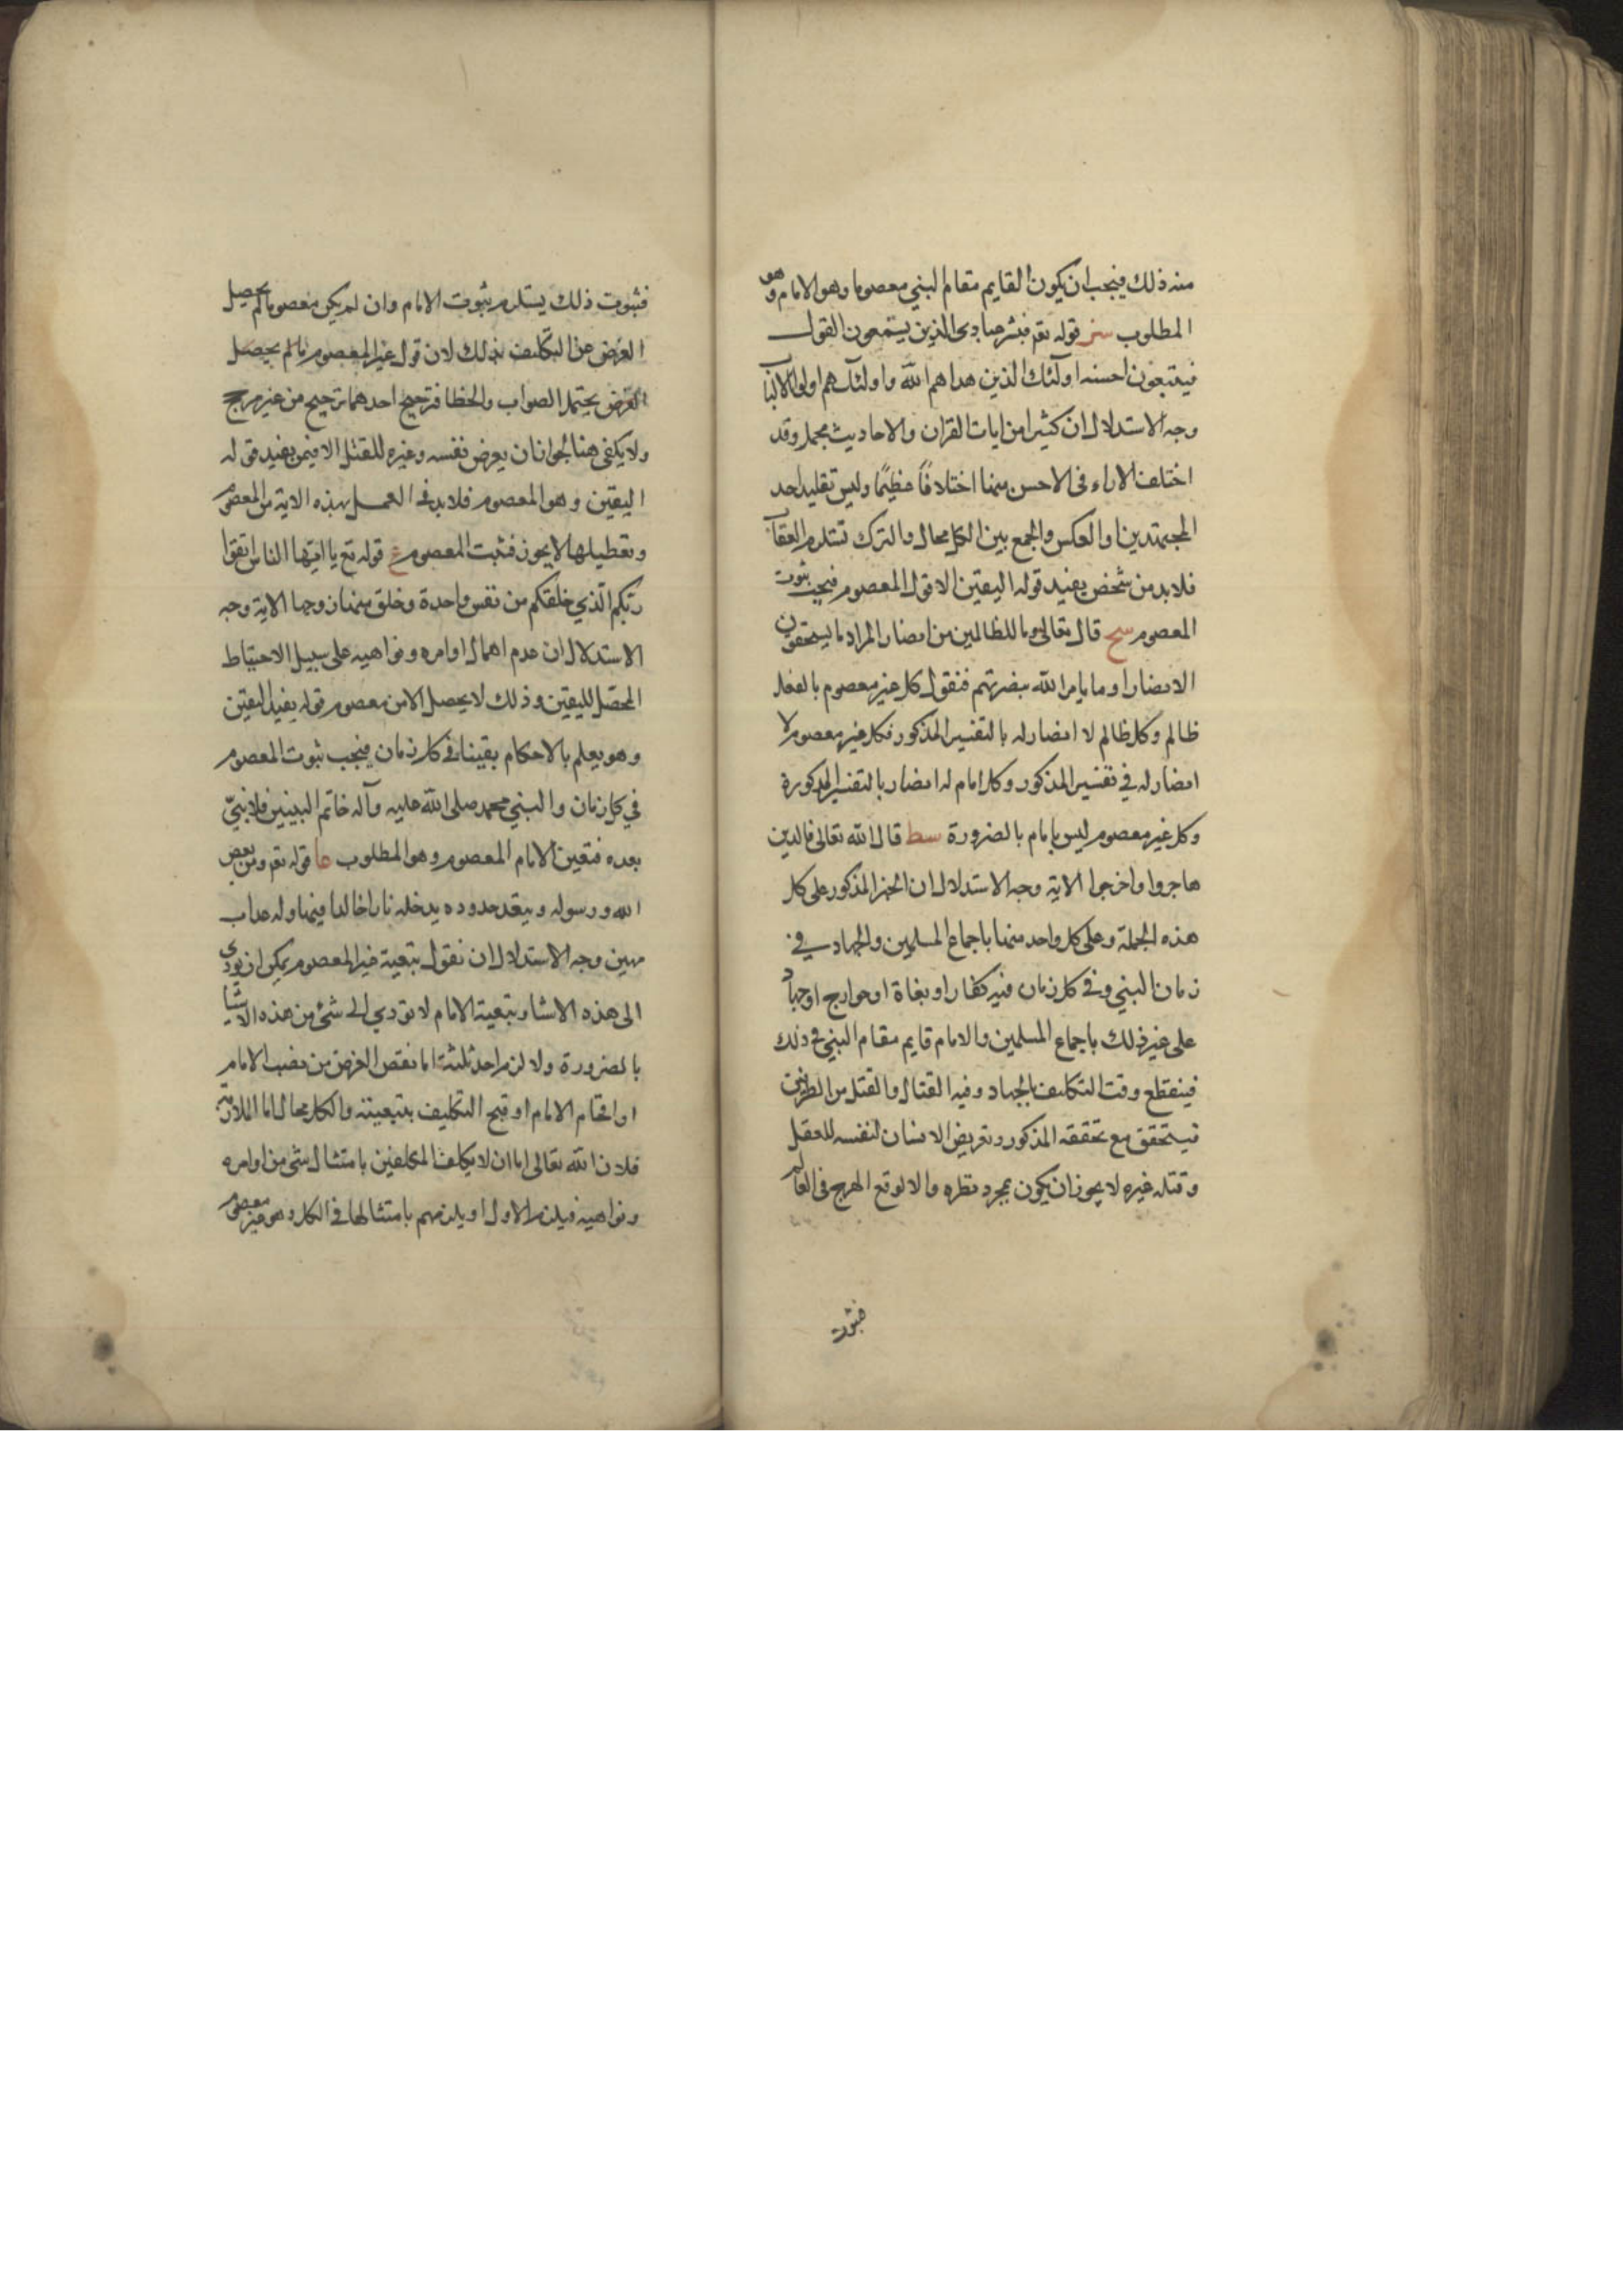 منه ذلك فيجب ان يكون القايم مقام النبي معصوما وهو الامام وهو
المطلوب سز قوله تع فبشر عبادي الذين يستمعون القول
فيتبعون احسنه اولئك الذين هداهم الله واولئك هم اولوا الالباب
وجه الاستدلال ان كثيرا من ايات القران والاحاديث مجمل وقد
اختلف الاراء في الاحسن منها اختلافًا عظيمًا وليس تقليد احد
المجتهدين اوالعكس والجمع بين الكل محال والترك تستلزم العقاب
فلابد من شخص يفيد قوله اليقين الا قول المعصوم فيجب ثبوت
المعصوم سح قال تعالى وما للظالمين من انصار المراد ما يستحقون
الانصار او ما يامر الله بنصرتهم فنقول كل غير معصوم بالفعل
ظالم وكل ظالم لا انصار له بالتفسير المذكور فكل غير معصوم لا
انصار له في تفسير المذكور وكل امام له انصار بالتفسير المذكورة
وكل غير معصوم ليس بامام بالضرورة سط قال الله تعالى فالذين
هاجروا واخرجوا الاية وجه الاستدلال ان الخبر المذكور على كل
هذه الجملة وعلى كل واحد منها باجماع المسلمين والجهاد في
زمان النبي وفي كل زمان فيه كفار او بغاة او خوارج او جهاد
على غير ذلك باجماع المسلمين والامام قايم مقام النبي في ذلك
فينقطع وقت التكليف بالجهاد وفيه القتال والقتل من الطرفين
فيستحقق مع تحققه المذكور وتعريض الانسان لنفسه للعقل
وقتله غيره لا يجوز ان يكون بمجرد نظره والا لوقع الهرج في العالم
فثبوت
فثبوت ذلك يستلزم ثبوت الامام وان لم يكن معصوما لم يحصل
الغرض من التكليف بذلك لان قول غير المعصوم ما لم يحصل
الغرض يحتمل الصواب والخطا فترجيح احدهما ترجيح من غير مرجح
ولا يكفي هنا لجواز ان يعرض نفسه وغيره للقتل الا فيمن يفيد قوله
اليقين وهو المعصوم فلابد في العمل بهذه الاية من المعصوم
وتعطيلها لا يجوز فثبت المعصوم ع قوله تع يا ايها الناس اتقوا
ربكم الذي خلقكم من نفس واحدة وخلق منها زوجها الاية وجه
الاستدلال ان عدم اهمال اوامره ونواهيه على سبيل الاحتياط
المحصل لليقين وذلك لا يحصل الا من معصوم قوله يفيد اليقين
وهو يعلم بالاحكام يقينا في كل زمان فيجب ثبوت المعصوم
في كل زمان والنبي محمد صلى الله عليه وآله خاتم النبيين فلا نبيّ
بعده فتعين الامام المعصوم وهو المطلوب عا قوله تع ومن يعص
الله ورسوله ويتعد حدوده يدخله نارا خالدا فيها وله عذاب
مهين وجه الاستدلال ان نقول تبعية غير المعصوم يمكن ان يودي
الى هذه الاشيا وتبعية الامام لا تودي الى شئ من هذه الاشيا
بالضرورة ولا لزم احد ثلثة اما نقص الغرض من نصب الامام
او افحام الامام او قبح التكليف بتبعيته والكل محال اما الملازمة
فلان الله تعالى اما ان لا يكلف المكلفين بامتثال شئ من اوامره
ونواهيه فيلزم الاول او يلزمهم بامتثالها في الكل وهو غير معصوم